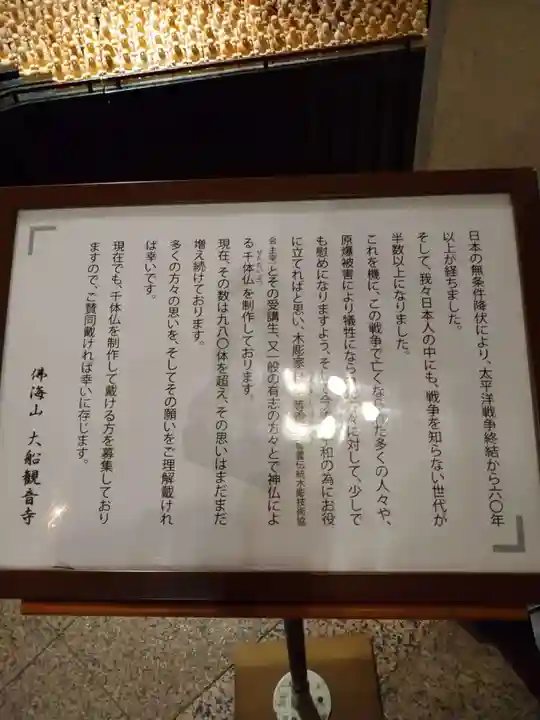 日本の無条件降伏により、太平洋戦争終結から六〇年
以上が経ちました。
そして、我々日本人の中にも、戦争を知らない世代が
半数以上になりました。
これを機に、この戦争で亡くなられた多くの人々や、
原爆被害により犠牲になら 々に対して、少しで
も慰めになりますよう、そし 和の為にお役
に立てればと思い、木彫家 伝統木彫技術協
会主宰）とその受講生、又一般の有志の方々とで神仏によ
る千体仏を制作しております。
現在、その数は九八〇体を超え、その思いはまだまだ
増え続けております。
多くの方々の思いを、そしてその願いをご理解戴けれ
ば幸いです。
現在でも、千体仏を制作して戴ける方を募集しており
ますので、ご賛同戴ければ幸いに存じます。
佛海山 大船観音寺